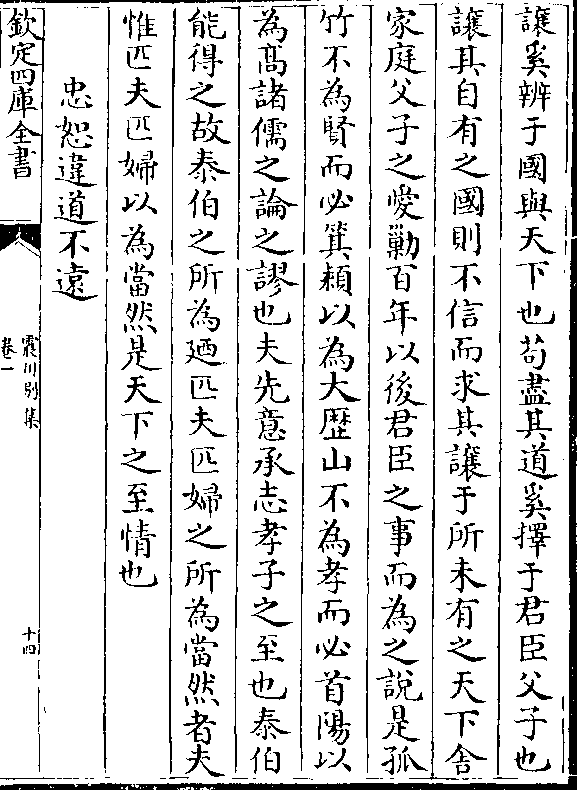 讓奚辨于國與天下也苟盡其道奚擇于君臣父子也
讓其自有之國則不信而求其讓于所未有之天下舎
家庭父子之愛勦百年以後君臣之事而為之說是孤
竹不為賢而必箕頼以為大歴山不為孝而必首陽以
為髙諸儒之論之謬也夫先意承志孝子之至也泰伯
能得之故泰伯之所為廼匹夫匹婦之所為當然者夫
惟匹夫匹婦以為當然是天下之至情也
忠恕違道不遠
欽定四庫全書
震川别集
卷一
十四